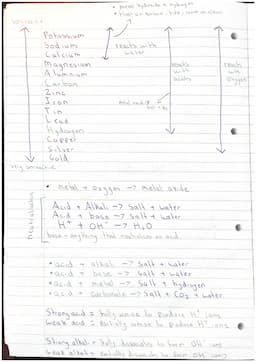 Potassium
Sodium
Calcium
Magnesium
Aluminium
Carbon
Zinc
Iron
Tin
Lead
Hydrogen
Copper
Silver
Gold
reacts with water
reacts with acids
reacts with oxygen
• metal + oxygen → metal oxide
Neutralisation
Acid + Alkali → Salt + water
Acid + base → Salt + water
H⁺ + OH⁻ → H₂O
base - anything that neutralises an acid
• acid + alkali → Salt + water
• acid + base → Salt + water
• acid + metal → Salt + hydrogen
• acid + carbonate → Salt + CO₂ + water
Strong acid = fully ionise to produce H⁺ ions
Weak acid = partially ionise to produce H⁺ ions
Strong alkali = fully dissociates to form OH⁻ ions
Weak alkali = partially dissociates to form OH⁻ ions